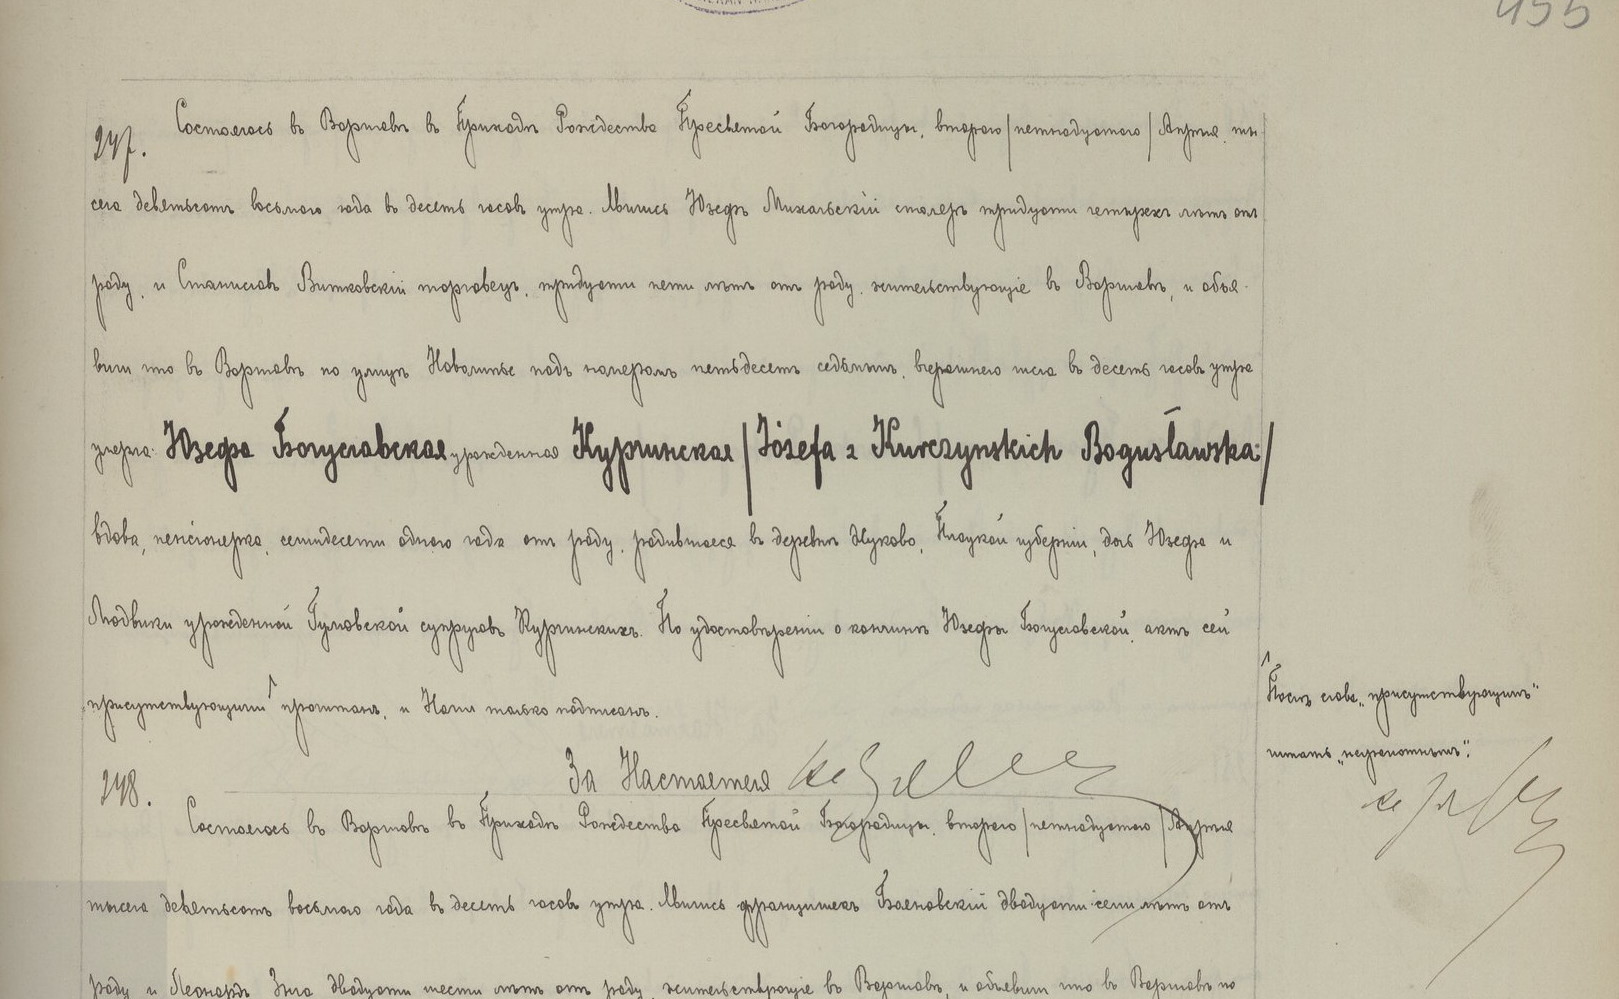 455
247. Состоялось въ Варшавѣ въ Приходѣ Рождества Пресвятой Богородицы, второго /пятнадцатого/ Апрѣля, ты-
сяча девятьсотъ восьмого года въ десять часовъ утра. Явились Юзефъ Михальскій столяръ тридцати четырехъ лѣтъ отъ
роду, и Станиславъ Витковскій торговецъ, тридцати пяти лѣтъ отъ роду, жительствующіе въ Варшавѣ, и объя-
вили что въ Варшавѣ по улицѣ Новолипье подъ номеромъ пятьдесятъ седьмымъ, вчерашнего числа въ десять часовъ утра
умерла: Юзефа Богуславская урожденная Курчинская /Józefa z Kurczyńskich Bogusławska:/
вдова, пенсіонерка, семидесяти одного года отъ роду, родившаяся въ деревнѣ Жуково, Плоцкой губерніи, дочь Юзефа и
Людвики урожденной супруговъ Курчинскихъ. По удостовѣреніи о кончинѣ Юзефы Богуславской, актъ сей
присутствующими прочитанъ, и Нами только подписанъ.
Послѣ слова „присутствующимъ"
читать „неграмотнымъ".
За Настоятеля
248. Состоялось въ Варшавѣ въ Приходѣ Рождества Пресвятой Богородицы, второго /пятнадцатого/ Апрѣля
тысяча девятьсотъ восьмого года въ десять часовъ утра. Явились Францишекъ двадцати семи лѣтъ отъ
роду и Леонардъ двадцати шести лѣтъ отъ роду, жительствующіе въ Варшавѣ, и объявили что въ Варшавѣ по